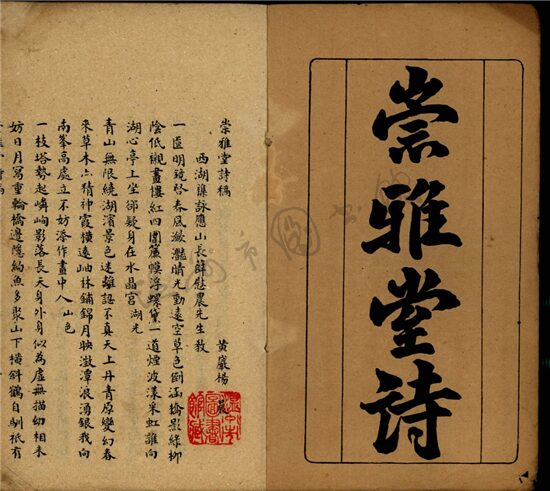 崇雅堂詩
崇雅堂詩稿
西湖集詠應山長薛慰農先生教
黃巖楊晨
一匳明鏡啓春風瀲灩晴光動遠空草色倒涵橋影綠柳
陰低襯畫樓紅四圍簾幙浮螺黛一道煙波漾采虹誰向
湖心亭上坐卻疑身在水晶宮湖光
青山無限繞湖濱景色迷離認不真天上丹青原變幻春
來草木亦精神霞橫遠岫林鋪錦月映澂潭浪湧銀我向
南峯高處立不妨添作畫中人山色
一枝塔勢起嶙峋影落長天身外身似為虛無描幻相未
妨日月寫重輪橋邊隱約魚多聚山下橫斜鶴自馴祇有